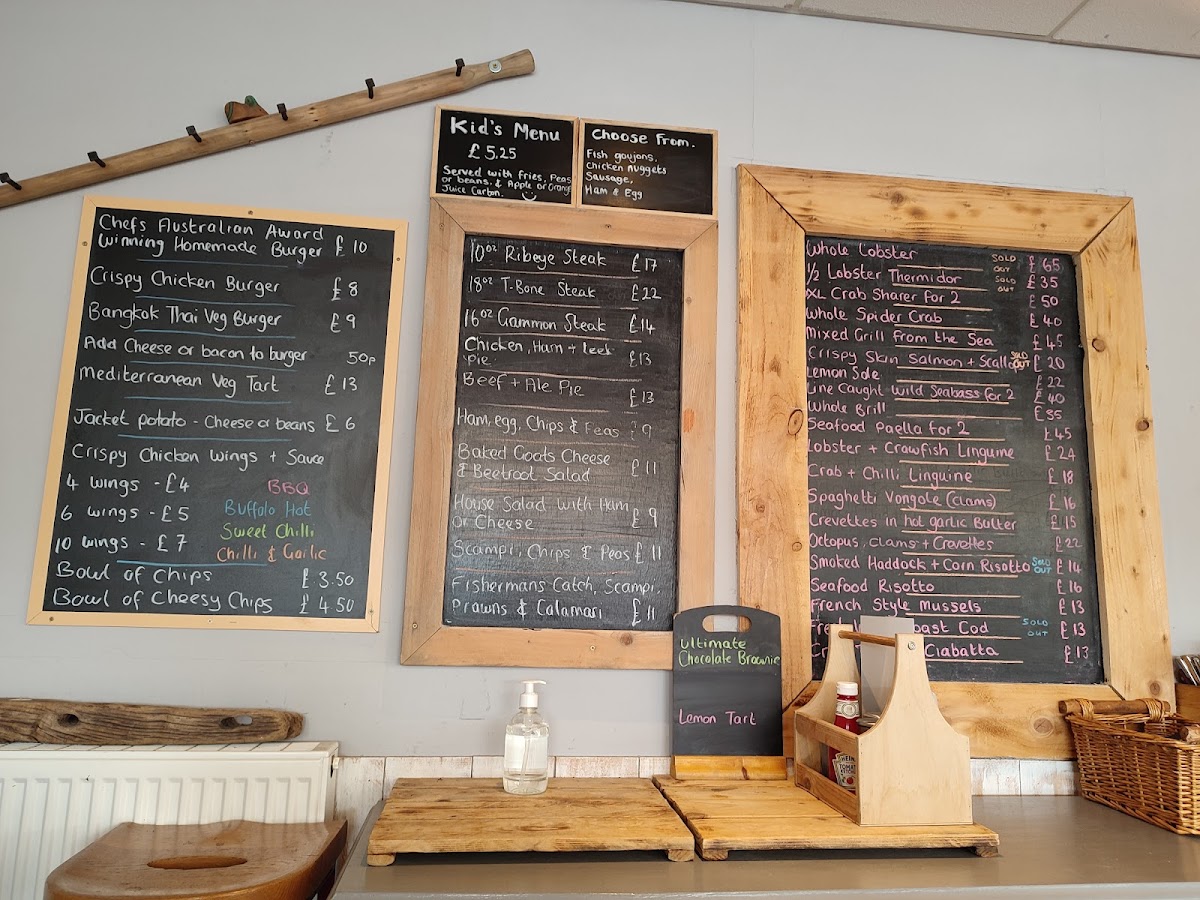 Chefs Australian Award
Winning Homemade Burger £10
Crispy Chicken Burger £8
Bangkok Thai Veg Burger £9
Add Cheese or bacon to burger 50p
Mediterranean Veg Tart £13
Jacket potato - Cheese or beans £6
Crispy Chicken Wings + Sauce
4 wings - £4 BBQ
6 wings - £5 Buffalo Hot
Sweet Chilli
10 wings - £7 Chilli & Garlic
Bowl of Chips £3.50
Bowl of Cheesy Chips £4 50
Kid's Menu
£5.25
Served with fries, Peas
or beans. & Apple or Orange
Juice Carton.
Choose From.
Fish goujons,
Chicken Nuggets
Sausage,
Ham & Egg
10oz Ribeye Steak £17
18oz T-Bone Steak £22
16oz Gammon Steak £14
Chicken, Ham + leek
Pie £13
Beef + Ale Pie £13
Ham, egg, Chips & Peas 9
Baked Goats Cheese
& Beetroot Salad £11
House Salad with Ham
or Cheese £9
Scampi, Chips & Peas £11
Fishermans Catch, Scampi,
Prawns & Calamari £11
Whole Lobster SOLD OUT £65
1/2 Lobster Thermidor SOLD OUT £35
XL Crab Sharer For 2 £50
Whole Spider Crab £40
Mixed Grill From the Sea £45
Crispy Skin Salmon + Scallo SOLD OUT £20
Lemon Sole £22
Line Caught Wild Seabass for 2 £40
Whole Brill £35
Seafood Paella for 2 £45
Lobster + Crawfish Linguine £24
Crab + Chilli Linguine £18
Spaghetti Vongole (clams) £16
Crevettes in hot garlic Butter £15
Octopus, clams + Crevettes £22
Smoked Haddock + Corn Risotto SOLD OUT £14
Seafood Risotto £16
French Style Mussels £13
oast Cod SOLD OUT £13
Ciabatta £13
Ultimate
Chocolate Brownie
Lemon Tart
HEINZ
TOMATO